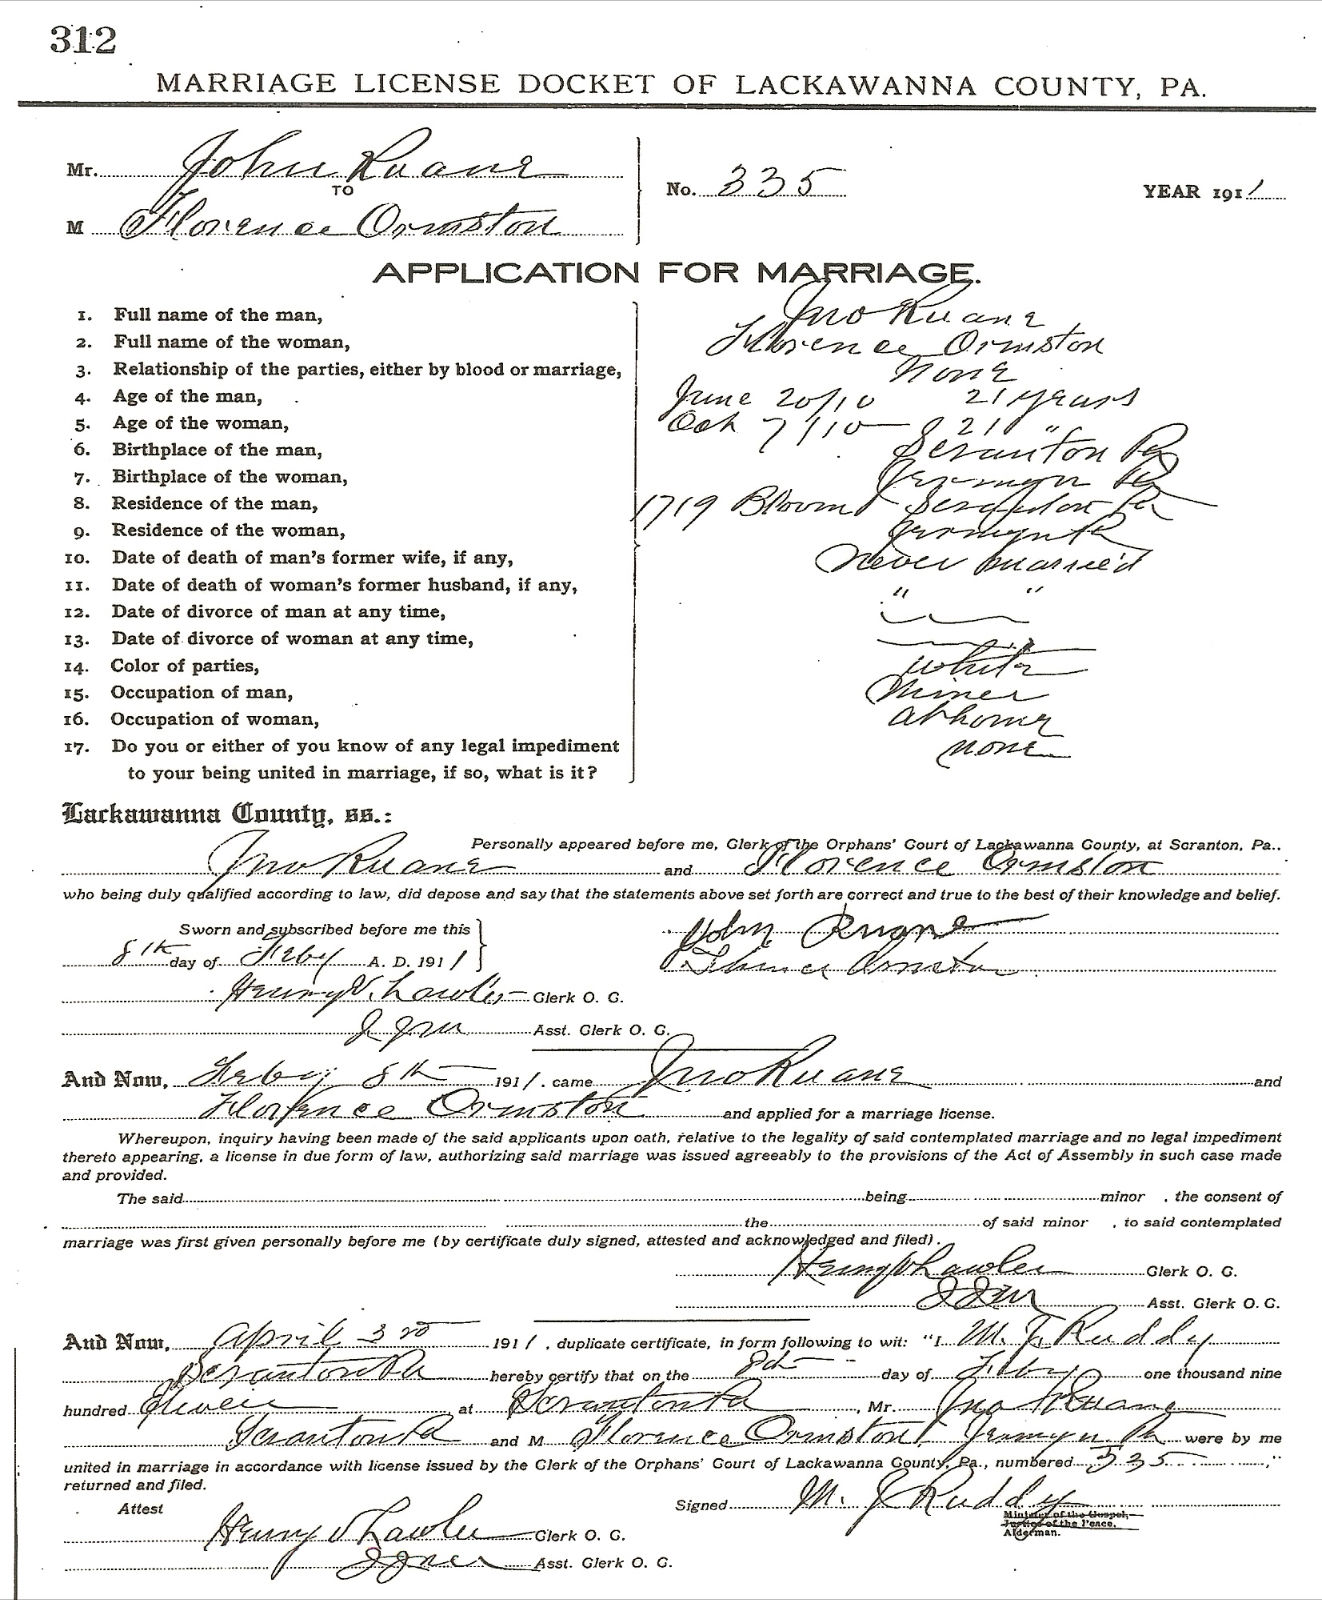 312
MARRIAGE LICENSE DOCKET OF LACKAWANNA COUNTY, PA.
Mr. John Ruane
TO
M Florence Ormston
No. 335 YEAR 1911
APPLICATION FOR MARRIAGE.
1. Full name of the man, Jno Ruane
2. Full name of the woman, Florence Ormston
3. Relationship of the parties, either by blood or marriage, None
4. Age of the man, June 20/10 21 years
5. Age of the woman, Oct 7/10 21 "
6. Birthplace of the man, Scranton Pa
7. Birthplace of the woman, Jermyn Pa
8. Residence of the man, 1719 Bloom Scranton Pa
9. Residence of the woman, Jermyn Pa
10. Date of death of man's former wife, if any, Never married
11. Date of death of woman's former husband, if any, " "
12. Date of divorce of man at any time,
13. Date of divorce of woman at any time,
14. Color of parties, White
15. Occupation of man, Miner
16. Occupation of woman, at home
17. Do you or either of you know of any legal impediment none
to your being united in marriage, if so, what is it?
Lackawanna County, ss.:
Personally appeared before me, Clerk of the Orphans' Court of Lackawanna County, at Scranton, Pa..
Jno Ruane and Florence Ormston
who being duly qualified according to law, did depose and say that the statements above set forth are correct and true to the best of their knowledge and belief.
Sworn and subscribed before me this John Ruane
8th day of Feby A. D. 1911 Florence Ormston
Henry V. Lawler Clerk O. C.
Asst. Clerk O. C.
And Now, Feby 8th 1911. came Jno Ruane and
Florence Ormston and applied for a marriage license.
Whereupon, inquiry having been made of the said applicants upon oath, relative to the legality of said contemplated marriage and no legal impediment
thereto appearing, a license in due form of law, authorizing said marriage was issued agreeably to the provisions of the Act of Assembly in such case made
and provided.
The said being minor , the consent of
the of said minor , to said contemplated
marriage was first given personally before me (by certificate duly signed, attested and acknowledged and filed).
Henry V Lawler Clerk O. C.
Asst. Clerk O. C.
And Now, April 3rd 1911, duplicate certificate, in form following to wit: "I M. J. Ruddy
Scranton Pa hereby certify that on the 8th day of Feby one thousand nine
hundred Eleven at Scranton Pa, Mr. Jno Ruane
Scranton Pa and M Florence Ormston Jermyn Pa were by me
united in marriage in accordance with license issued by the Clerk of the Orphans' Court of Lackawanna County, Pa., numbered 335 ,"
returned and filed.
Attest Signed M. J. Ruddy
Minister of the Gospel,
Justice of the Peace,
Alderman.
Henry V Lawler Clerk O. C.
Asst. Clerk O. C.